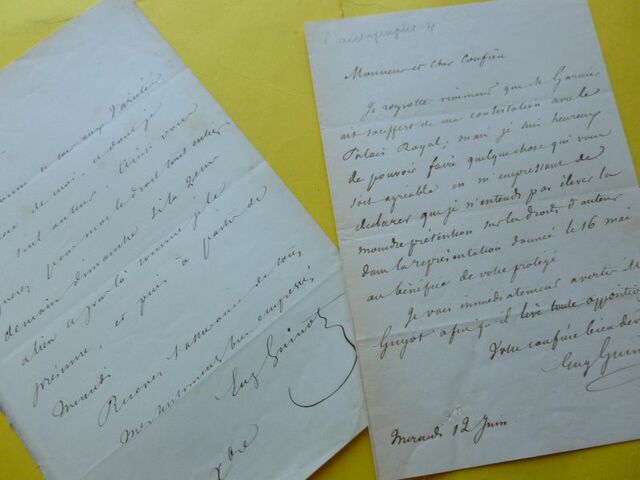 d'année
de moi, et dont je
seul auteur. Ainsi vous
pour moi le droit tout entier
demain dimanche si la 2eme
a lieu ce jour là comme je le
présume, et puis à partir de
Mercredi
Recevez l'assurance de tous
mes sentiments bien empressés
Eug Guinot
Monsieur et Cher Confrère
Je regrette vivement que M. Garnier
ait souffert de ma contestation avec le
Palais Royal; mais je suis heureux
de pouvoir faire quelque chose qui vous
soit agréable en m'empressant de
declarer que je n'entends pas élever la
moindre prétention sur les droits d'auteur
dans la représentation donnée le 16 mai
au bénéfice de votre protégé
Je vais immédiatement avertir M.
Guyot afin qu'il lève toute opposition
Votre confrère bien dév
Eug Guin
Mercredi 12 Juin